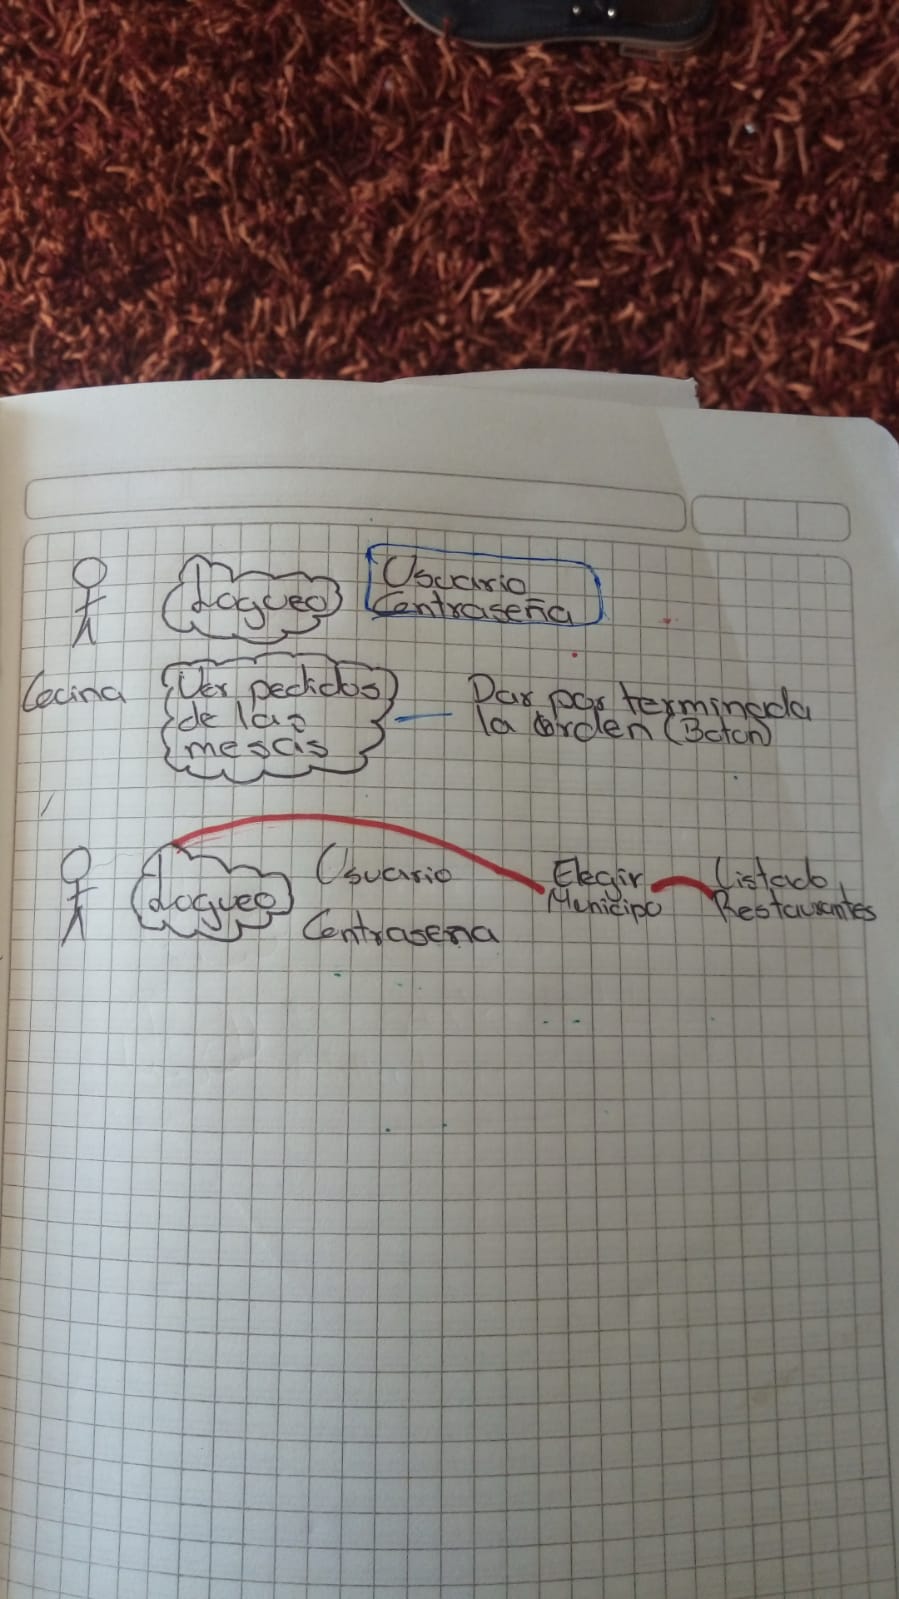 Logueo
Usuario
Contraseña
Cocina
Ver pedidos
de las
mesas
Dar por terminada
la orden (Boton)
Logueo
Usuario
Contrasena
Elegir
Municipo
Listado
Restaurantes